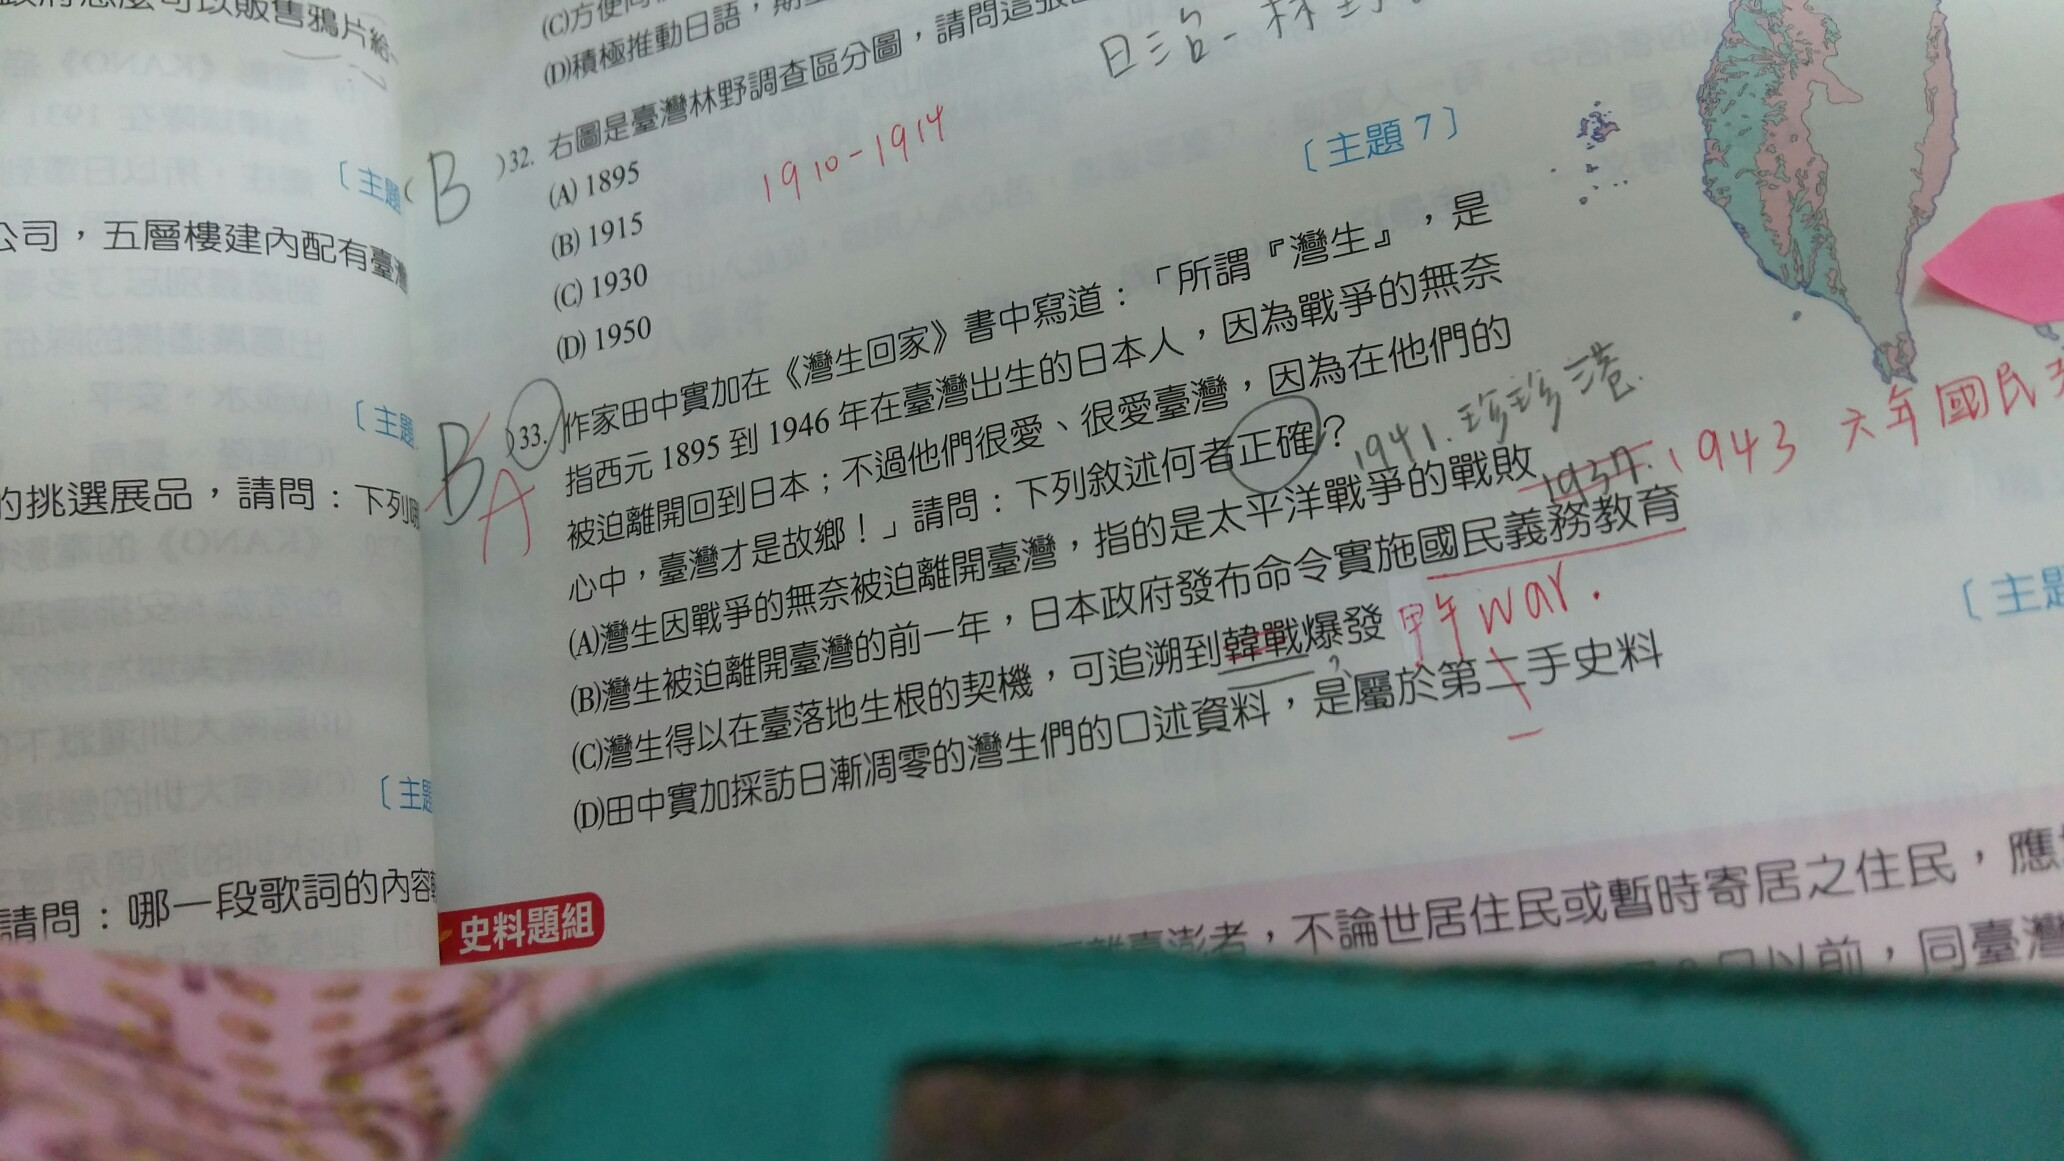 政府怎麼可以販售鴉片給
〔主題
公司，五層樓建內配有臺灣
〔主題
的挑選展品，請問：下列哪
〔主題
請問：哪一段歌詞的內容
(D)積極推動日語，期望
日治-林野
(B)32. 右圖是臺灣林野調查區分圖，請問這張
(A) 1895
1910-1914
(B) 1915
〔主題 7〕
(C) 1930
(D) 1950
B A
)33. 作家田中實加在《灣生回家》書中寫道：「所謂『灣生』，是
指西元 1895 到 1946 年在臺灣出生的日本人，因為戰爭的無奈
被迫離開回到日本；不過他們很愛、很愛臺灣，因為在他們的
心中，臺灣才是故鄉！」請問：下列敘述何者正確？
1941.珍珍港.
(A)灣生因戰爭的無奈被迫離開臺灣，指的是太平洋戰爭的戰敗
1937.
1943 六年國民
(B)灣生被迫離開臺灣的前一年，日本政府發布命令實施國民義務教育
(C)灣生得以在臺落地生根的契機，可追溯到韓戰爆發
甲午war.
〔主題
(D)田中實加採訪日漸凋零的灣生們的口述資料，是屬於第二手史料
一
史料題組
臺澎者，不論世居住民或暫時寄居之住民，應
日以前，同臺灣